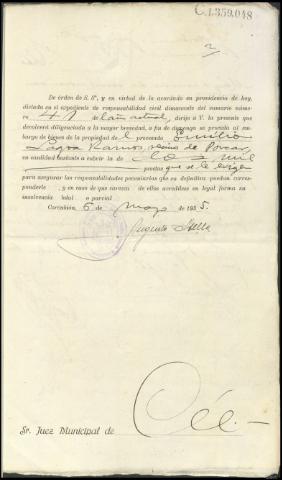 C.1.359.048
De órden de S. Sª, y en virtud de lo acordado en providencia de hoy,
dictada en el expediente de responsabilidad civil dimanante del sumario núme-
ro 41 del año actual, dirijo á V. la presente que
devolverá diligenciada a la mayor brevedad, a fin de que se proceda al em-
bargo de bienes de la propiedad del procesado Emilio
Lagoa Ramos, vecino de
en cantidad bastante a cubrir la de dos mil
pesetas que se le exigen
para asegurar las responsabilidades pecuniarias que en definitiva puedan corres-
ponderle, y en caso de que carezca de ellos acredítese en legal forma su
insolvencia total o parcial.
Corcubión, 6 de mayo de 1935.
Augusto
Sr. Juez Municipal de Cée.-